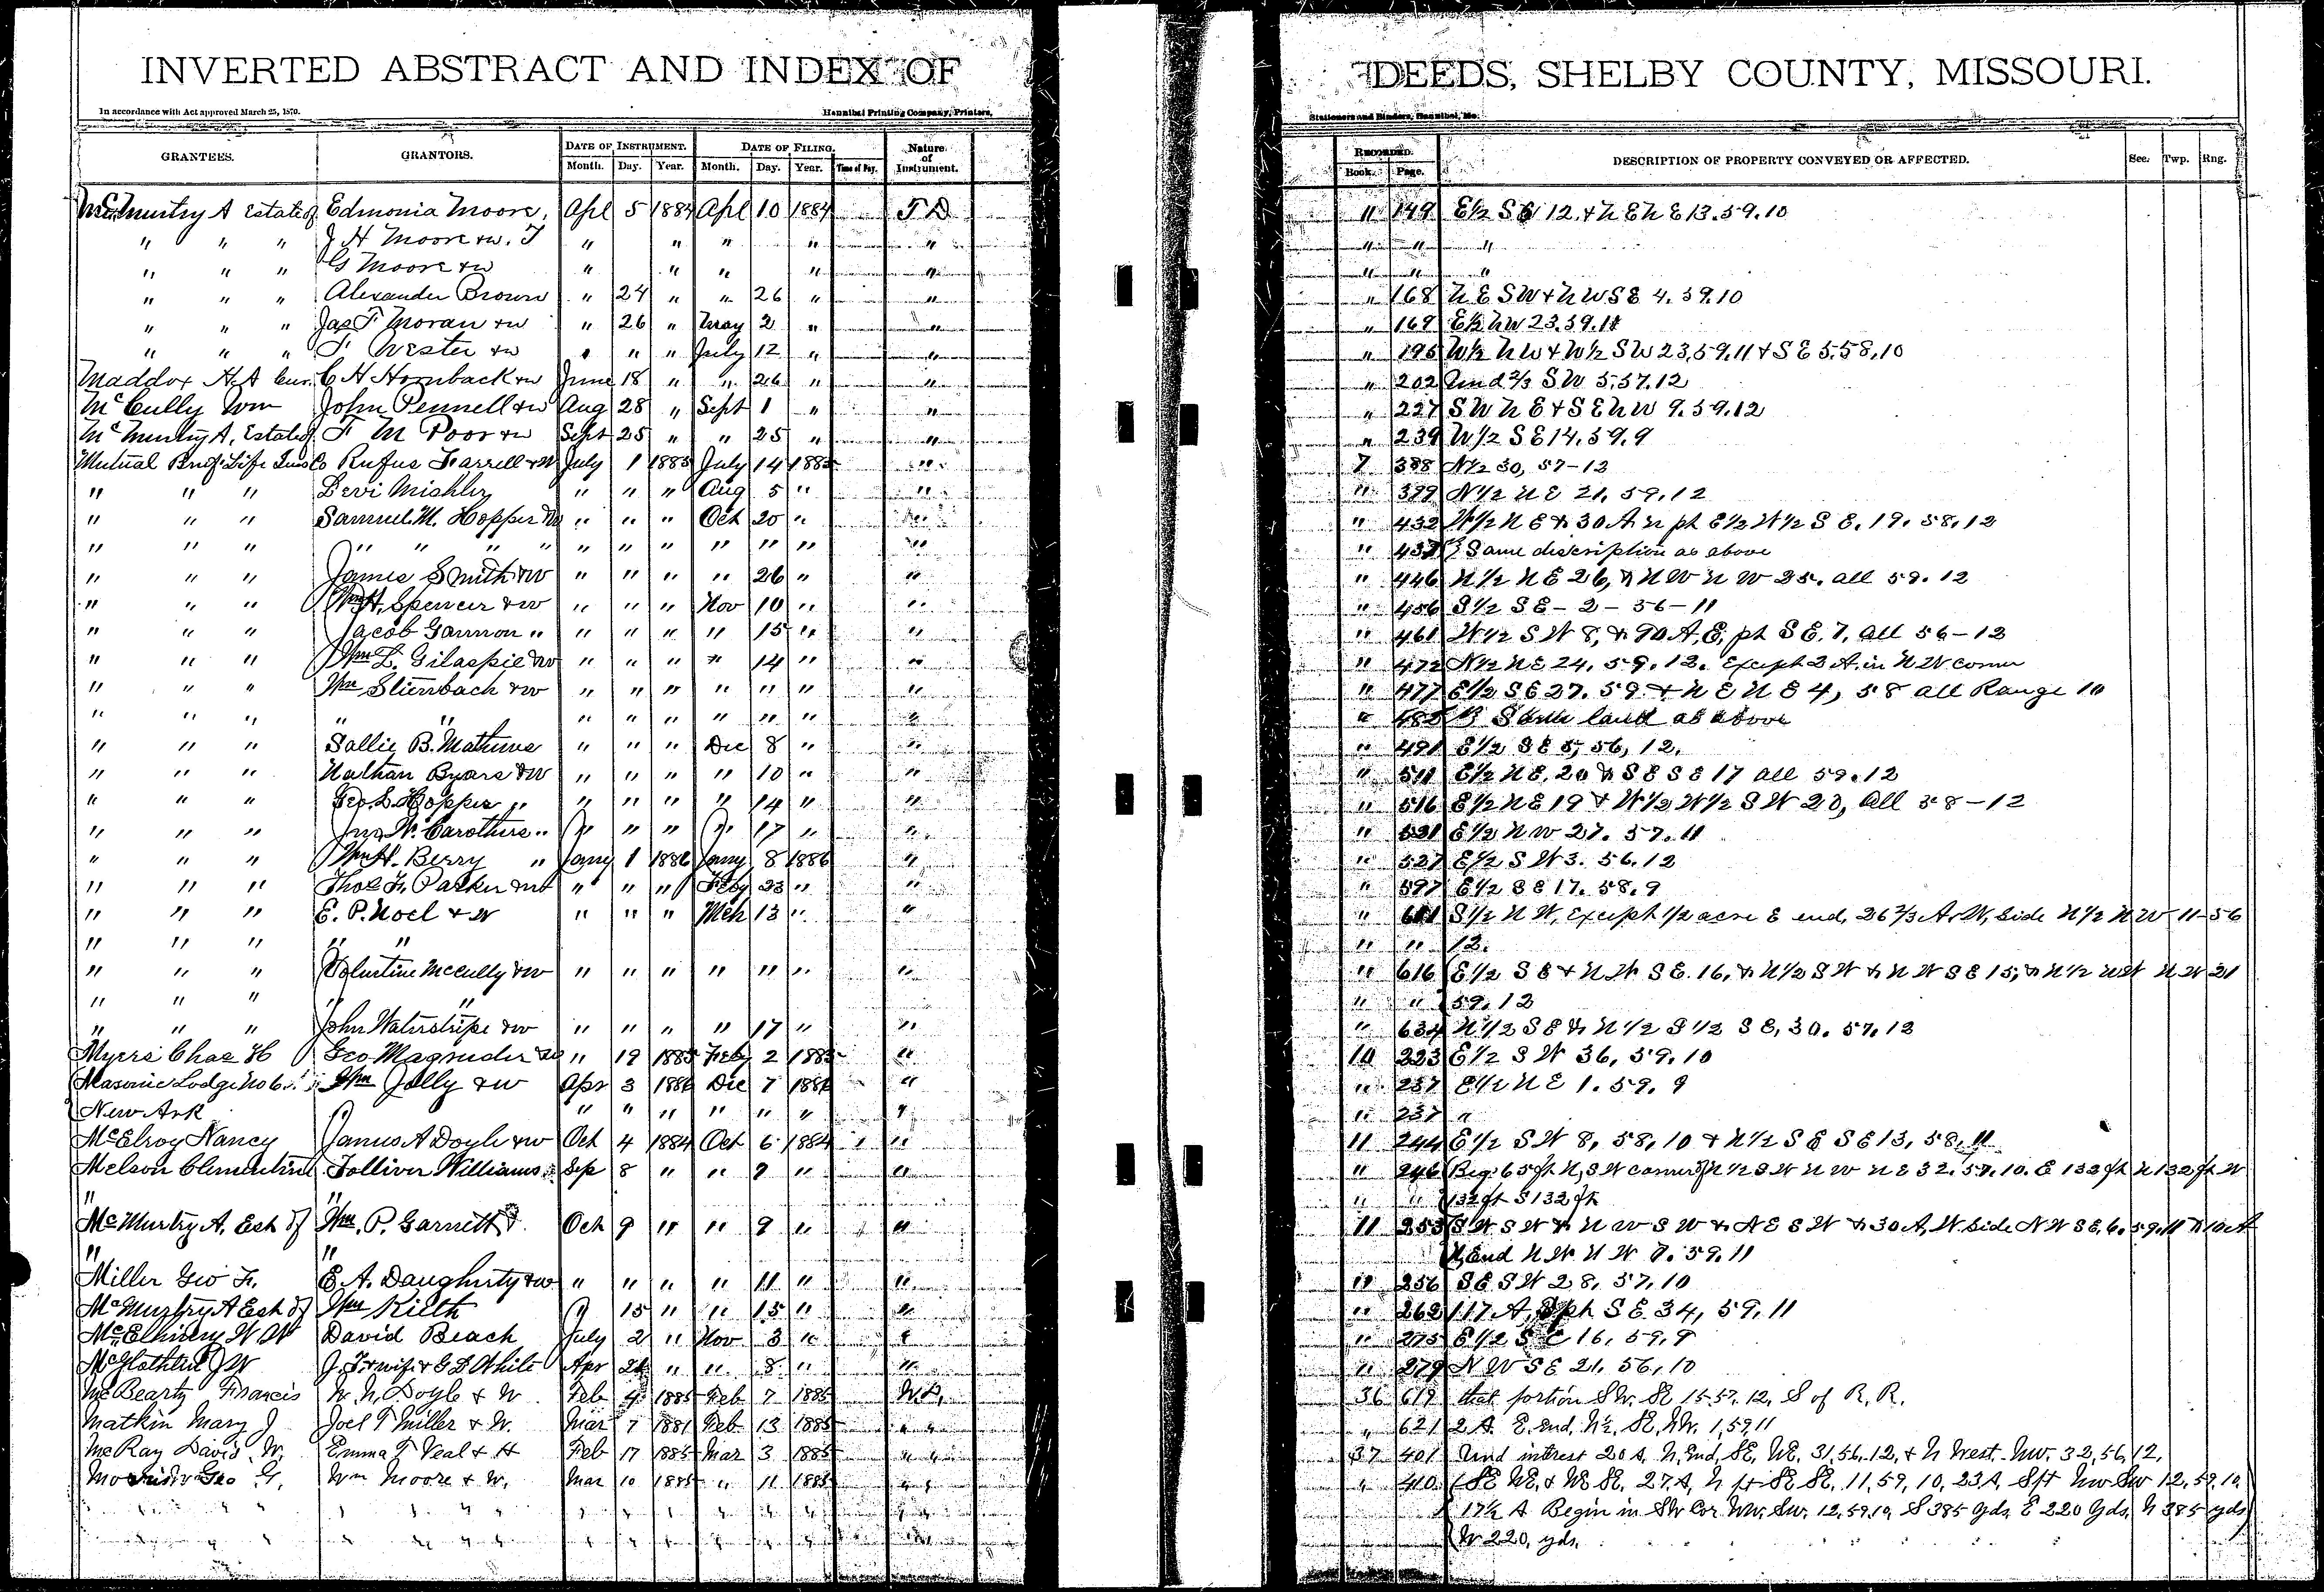 INVERTED ABSTRACT AND INDEX OF DEEDS, SHELBY COUNTY, MISSOURI.
In accordance with Act approved March 25, 1870. Hannibal Printing Company, Printers, Stationers and Binders, Hannibal, Mo.
GRANTEES. GRANTORS. DATE OF INSTRUMENT. DATE OF FILING. Nature of Instrument. RECORDED. DESCRIPTION OF PROPERTY CONVEYED OR AFFECTED. Sec. Twp. Rng.
Month. Day. Year. Month. Day. Year. Time of Day. Book. Page.
McMurtry A Estate of Edmonia Moore, Apl 5 1884 Apl 10 1884 T D 11 149 E½ S E 12 & N E N E 13. 59. 10
" " " J H Moore & w. T " " " " " " " "
" " " G Moore & w " " " " " " " "
" " " Alexander Brown " 24 " " 26 " " " 168 N E S W & N W S E 4. 59. 10
" " " Jas F Moran & w " 26 " May 2 " " " 169 E½ N W 23. 59. 11
" " " F Wester & w " " " July 12 " " " 195 W½ N W & W½ S W 23, 59. 11 & S E 5. 58, 10
Maddox H. A Cur. C H Hornback & w June 18 " " 26 " " " 202 Und ⅔ S W 5. 57. 12
McCully Wm John Pennell & w Aug 28 " Sept 1 " " " 227 S W N E & S E N W 9. 59. 12
McMurtry A, Estate of F M Poor & w Sept 25 " " 25 " " " 239 W ½ S E 14. 59. 9
Mutual Benf. Life Ins Co Rufus Farrell & W July 1 1885 July 14 1885 " 7 388 N½ 30, 57-12
" " " Levi Mishley " " " Aug 5 " " " 399 N ½ N E 21. 59. 12
" " " Samuel M. Hopper & w " " " Oct 20 " " " 432 W ½ N E & 30 A n pt E ½ W ½ S E. 19. 58. 12
" " " " " " " " " " " " " " " 437 } Same discription as above
" " " James Smith & W " " " " 26 " " " 446 N ½ N E 26, & N W N W 25. all 59. 12
" " " Wm H. Spencer & w " " " Nov 10 " " " 456 S ½ S E - 2 - 56 - 11
" " " Jacob Gannon " " " " " 15 " " " 461 W ½ S W 8, & 90 A. E. pt S E. 7, all 56-12
" " " Wm L. Gilaspie & w " " " " 14 " " " 472 N ½ N E 24. 59. 12. Except 2 A. in N W corner
" " " Wm Stienbach & w " " " " " " " " 477 E ½ S E 27. 59 & N E N E 4, 58 all Range 10
" " " " " " " " " " " " " 485 } Same land as above
" " " Sallie B. Mathews " " " Dec 8 " " " 491 E ½ S E 5, 56, 12.
" " " Nathan Byars & W " " " " 10 " " " 511 E ½ N E. 20 & S E S E 17 all 59. 12
" " " Geo. L. Hopper " " " " " 14 " " " 516 E ½ N E 19 & W ½ W ½ S W 20, all 58-12
" " " Jno W. Carothers " " " " " 17 " " " 531 E ½ N W 27. 57. 11
" " " Wm H. Berry " Jany 1 1886 Jany 8 1886 " " 537 E ½ S W 3. 56. 12
" " " Thos F. Parker & W " " " Feby 23 " " " 597 E ½ S E 17. 58. 9
" " " E. P. Noel & W " " " Mch 13 " " " 611 S ½ N W, except ½ acre E end, 26 ⅔ A. W, side N ½ N W 11-56
" " " " " " " 12.
" " " Volentine McCully & w " " " " " " " " 616 E ½ S E & N W S E. 16, & N ½ S W & N W S E 15; & N ½ N W 21
" " " " " " " 59. 12
" " " John Waterstripe & w " " " " 17 " " " 634 N ½ S E & N ½ S ½ S E, 30. 57. 12
Myers Chas H Geo Magruder & w " 19 1885 Feby 2 1885 " 10 223 E ½ S W 36, 59. 10
Masonic Lodge No 6 Wm Jolly & w Apr 3 1886 Dec 7 1886 " " 237 E ½ N E 1. 59. 9
New Ark " " " " " " " " 237 "
McElroy Nancy James A Doyle & w Oct 4 1884 Oct 6 1884 " 11 244 E ½ S W 8, 58, 10 & N ½ S E S E 13, 58, 11
Melson Clementine Tolliver Williams Sep 8 " " 9 " " " 246 Beg. 65 ft N, S W corner of N ½ S W N W N E 32. 57. 10. E 132 ft N 132 ft W
" " " " 132 ft S 132 ft
McMurtry A. Est of Wm. P. Garnett & Oct 9 " " 9 " " 11 253 S W S W & N W S W & N E S W & 30 A, W. side N W S E, 6. 59. 11 & 10 A
" " N, End N W N W 7. 59. 11
Miller Geo F. E. A. Daugherty & w " " " " 11 " " " 256 S E S W 28, 57, 10
McMurtry A Est of Wm Kieth " 15 " " 15 " " " 262 117 A, pt S E. 34, 59, 11
W W David Beach July 2 " Nov 3 " " " 275 E ½ S E 16, 59, 9
J W J. F & wife & G L White Apr " " 8 " " " 279 N W S E 21. 56, 10
Francis W. N. Doyle & W. Feb 4 1885 Feb 7 1885 W. D, 36 619 that portion SW. SE 15. 57. 12, S of R. R.
Matkin Mary J Joel T Miller & W. Mar 7 1881 Feb 13 1885 " " " 621 2 A. E. end, N½, SE, NW. 1, 59 11
McRay Davis W. Emma F Veal & H Feb 17 1885 Mar 3 1885 " " 37 401 Und interest 20 A, N. End, SE, NE. 31, 56, 12, & N West. NW. 32, 56, 12,
Geo G, Wm Moore & W, Mar 10 1885 " 11 1885 " " " 410 SE NE, & NE SE, 27 A, N pt SE SE, 11, 59, 10, 23 A, S pt NW SW 12, 59, 10,
" " " " " " " " " " " " " 17½ A Begin in SW Cor NW, SW. 12, 59, 10, S 385 yds, E 220 yds, N 385 yds
" " " " " " " " " " " " " W 220, yds,